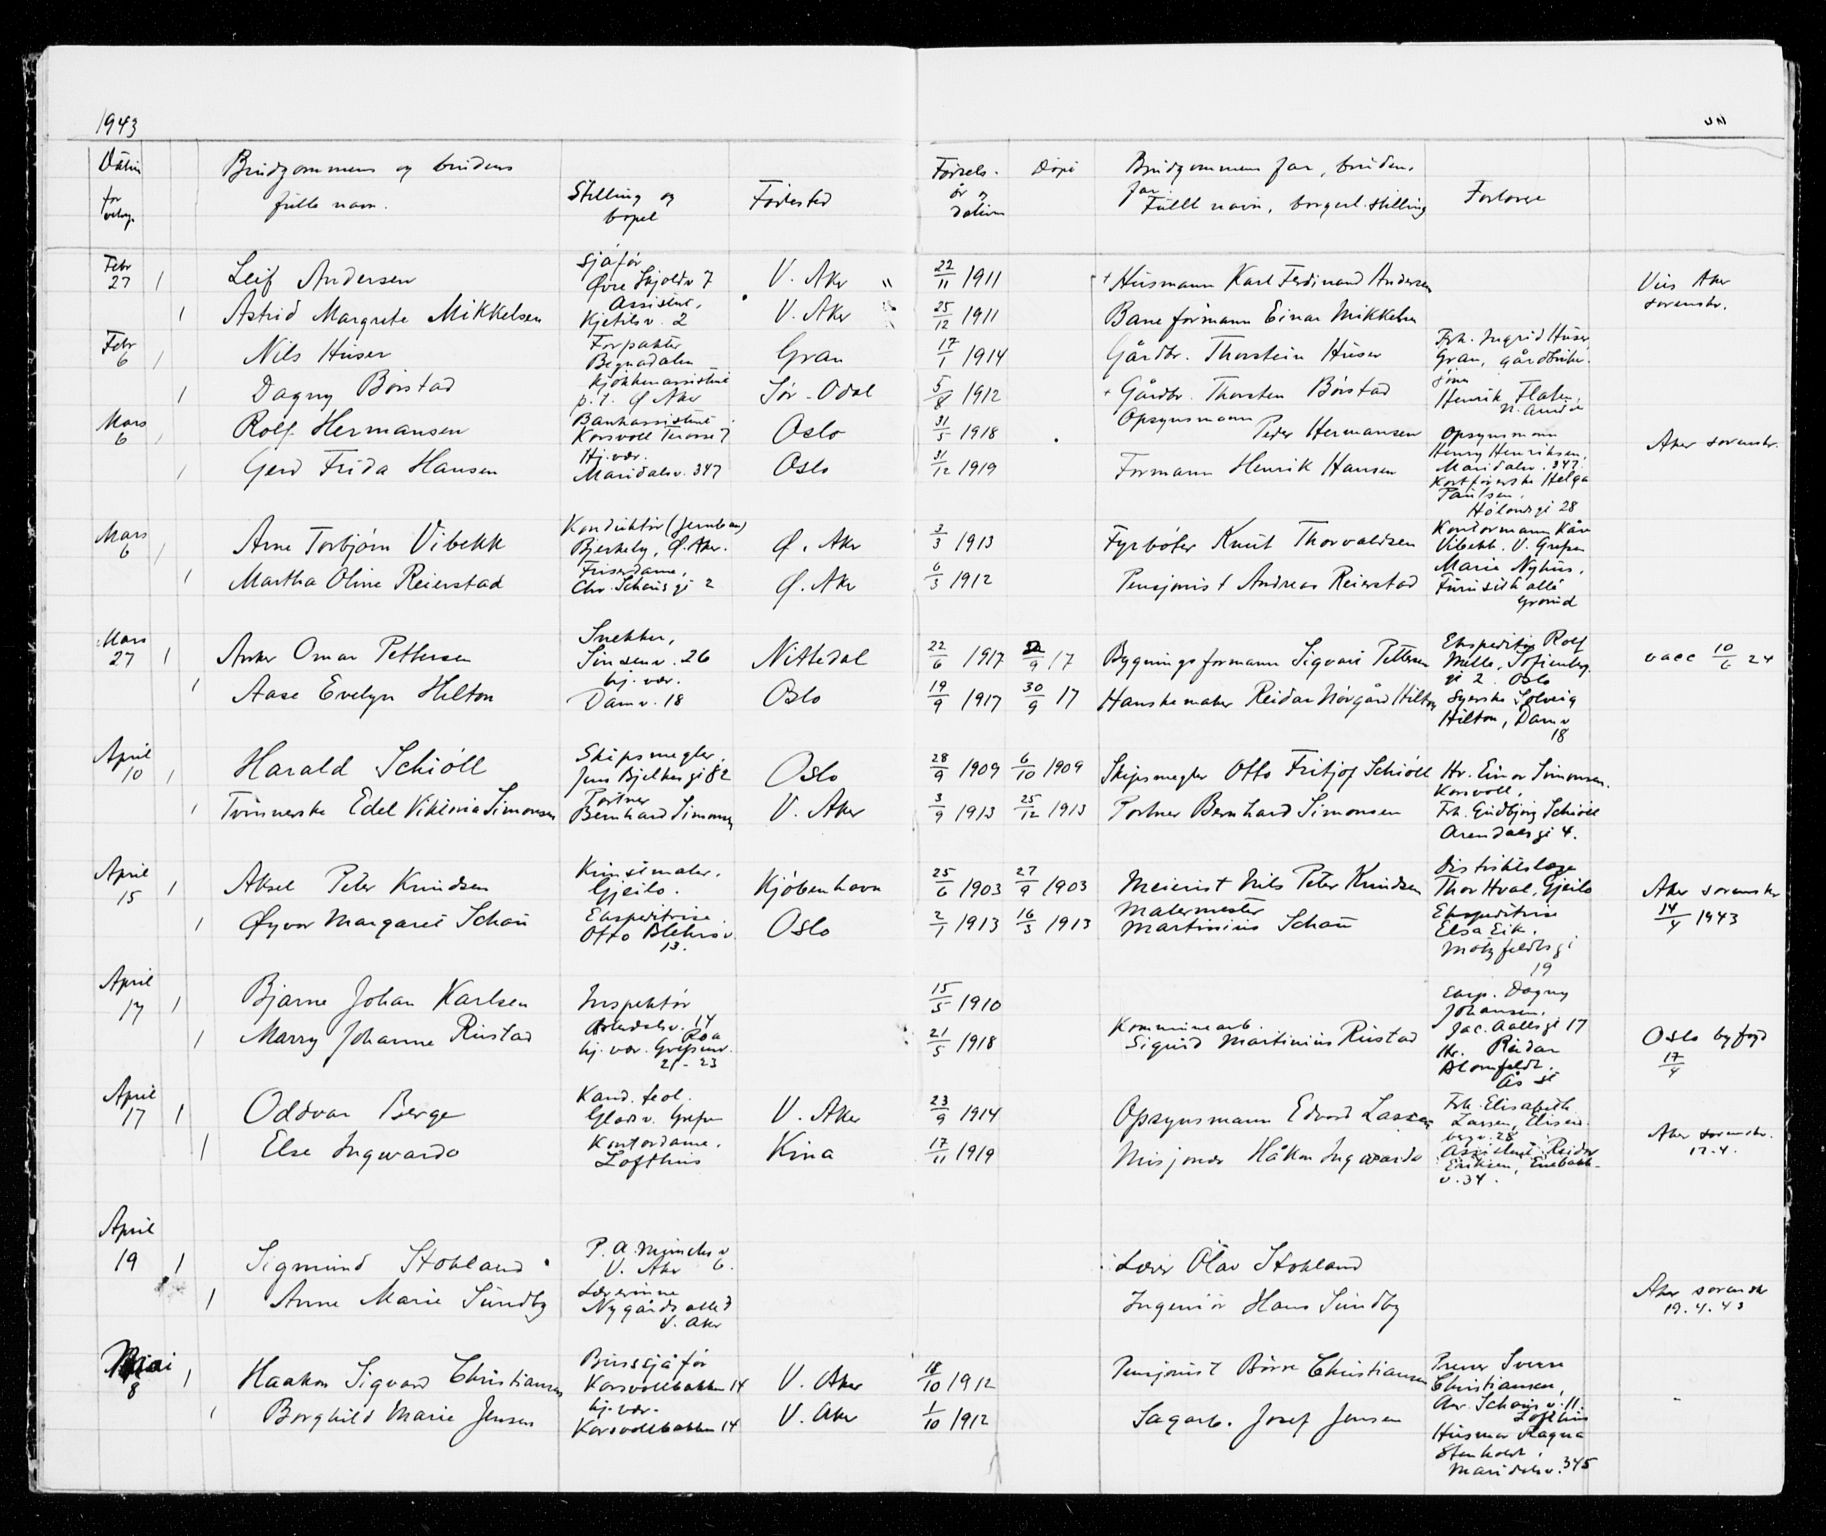 1943
Datum for vielsg. Brudgommens og brudens fulle navn. Stilling og bopel Fødested Fødsels-år og datum Døpt Brudgommens far, brudens far. Fullt navn, borgerl. stilling Forlovere
Febr 27 1 Leif Andersen sjåfør Øvre Skjoldv 7 V. Aker 22/11 1911 + Husmann Karl Ferdinand Andersen Aker sorenskr.
1 Astrid Margrete Mikkelsen Assistent, Kjetilsv. 2 V. Aker 25/12 1911 Baneformann Einar Mikkelsen
Febr 6 1 Nils Huser Forpakter Begnadalen Gran 17/1 1914 Gårdbr. Thorstein Huser Frk. Ingrid Huser, Gran, gårdbruker
1 Dagny Børstad Kjøkkenassistent p.t. Ø Aker Sør-Odal 5/8 1912 + Gårdbr. Thorsten Børstad Henrik Flaten,
Mars 6 1 Rolf Hermansen Bankassistent Korsvoll Terasse 7 Oslo 31/5 1918 Opsynsmann Peder Hermansen Opsynsmann Henry Henriksen, Maridalsv. 347 Aker sorenskr.
1 Gerd Frida Hansen Hj. vær. Maridalsv. 347 Oslo 31/12 1919 Formann Henrik Hansen Kortførerske Helga Paulsen,
Mars 6 1 Arne Torbjørn Vibekk Konduktør (Jernban) Bjerkeby, Ø. Aker. Ø. Aker 3/3 1913 Fyrbøter Knut Thorvaldsen Kontormann Kåre Vibekk. V. Grefsen
1 Martha Oline Reierstad Friserdame, Chr. Schous gt 2 Ø. Aker 6/3 1912 Pensjonist Andreas Reierstad Marie Nyhus, Furuseth allé Grorud
Mars 27 1 Anker Omar Pettersen Snekker, Sinsenv. 26 Nittedal 22/6 1917 /9 17 Bygningsformann Sigvart Pettersen Ekspeditør Rolf Melle, Sofienberg gt 2 Oslo vacc 10/6 24
1 Aase Evelyn Hilton hj. vær. Damv. 18 Oslo 19/9 1917 30/9 17 Hanskemaker Reidar Norgård Hilton Syerske Solveig Hilton, Damv 18
April 10 1 Harald Schiøll Skipsmegler, Jens Bjelkes gt 82 Oslo 28/9 1909 6/10 1909 Skipsmegler Otto Fritjof Schiøll Hr. Einar Simonsen. Korsvoll,
1 Tvinnerske Edel Viktoria Simonsen Portner Bernhard Simonsen V. Aker 3/9 1913 25/12 1913 Portner Bernhard Simonsen Frk. Gudbjørg Schiøll Arendalsgt 4.
April 15 1 Aksel Peter Knudsen Kunstmaler, Gjeilo. Kjøbenhavn 25/6 1903 27/9 1903 Meierist Nils Peter Knudsen Distriktslege Thor Hval, Gjeilo Aker sorenskr 14/4 1943
1 Øyvor Margaret Schou Ekspeditrise. Otto Blehrsv. 13. Oslo 2/1 1913 16/3 1913 Malermester Martinius Schou Ekspeditrise Elsa Eik, Motzfeldtsgt 19
April 17 1 Bjarne Johan Karlsen Inspektør Arendalsv. 14 15/5 1910 Eksp. Dagny Johansen, Jac. Aallsgt 17 Oslo byfogd 17/4
1 Marry Johanne Rustad Roa hj. vær. Grefsenv. 21-23 21/5 1918 Kommunearb. Sigurd Martinius Rustad Hr. Reidar Blomfeldt. Ås st
April 17 1 Oddvar Berge Kand. teol. Gladsv. Grefsen V. Aker 23/9 1914 Opsynsmann Edvard Lassen Frk. Elisabeth Larsen, Elisenbergv. 28 Aker sorenskr. 17.4.
1 Else Ingwardo Kontordame, Lofthus Kina 17/11 1919 Misjonær Håkon Ingwardo Assistent Reidar Eriksen, Enebakkv. 34.
April 19 1 Sigmund Stokland P. A. Munchs v 6. V. Aker Lærer Olav Stokland
1 Anne Marie Sundby Lærerinne Nygårds allé 7 V. Aker Ingeniør Hans Sundby Aker sorenskr 19.4.43
Mai 8 1 Haakon Sigvard Christiansen Bussjåfør Korsvollbakken 14 V. Aker 18/10 1912 Pensjonist Børre Christiansen Prener Sverre Christiansen, Chr. Schousv. 11. Lofthus
1 Borghild Marie Jensen hj. vær. Korsvollbakken 14 V. Aker 1/10 1912 Sagarb. Josef Jensen Husmor Ragna Stenholt, Maridalsv. 345